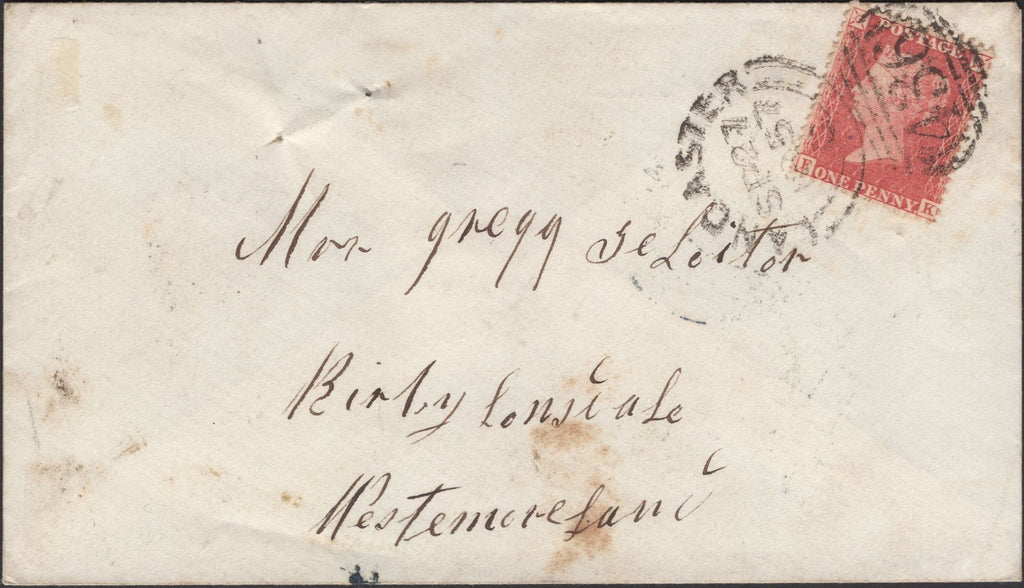 POSTAGE
E ONE PENNY K
LANCASTER
SP 21
57
Mor gregg seLoitor
Kirby lonsdale
Westemoreland